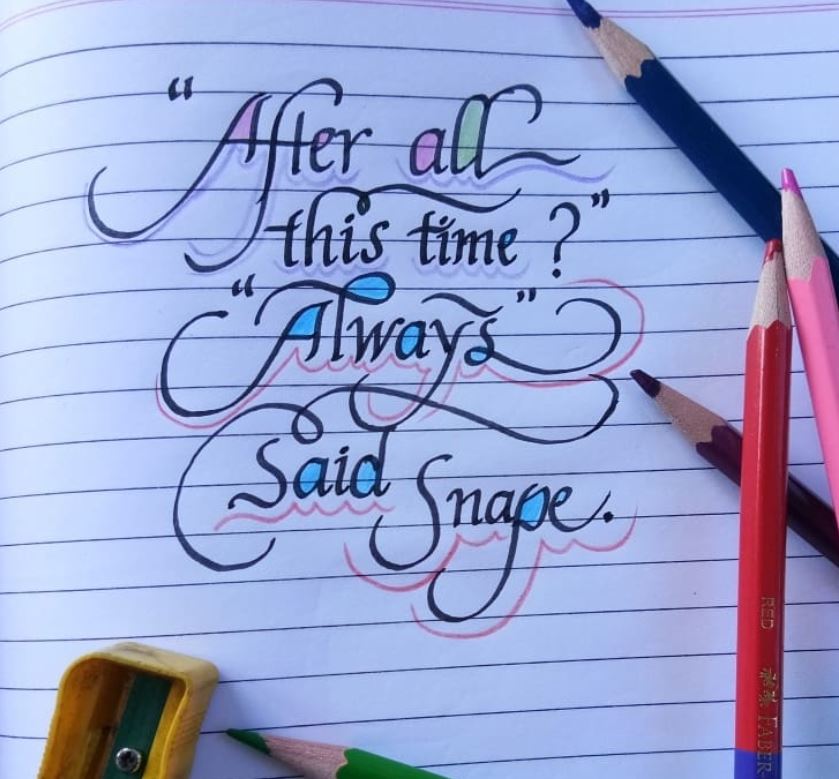 “After all
this time?”
“Always”
Said Snape.
RED
FABER